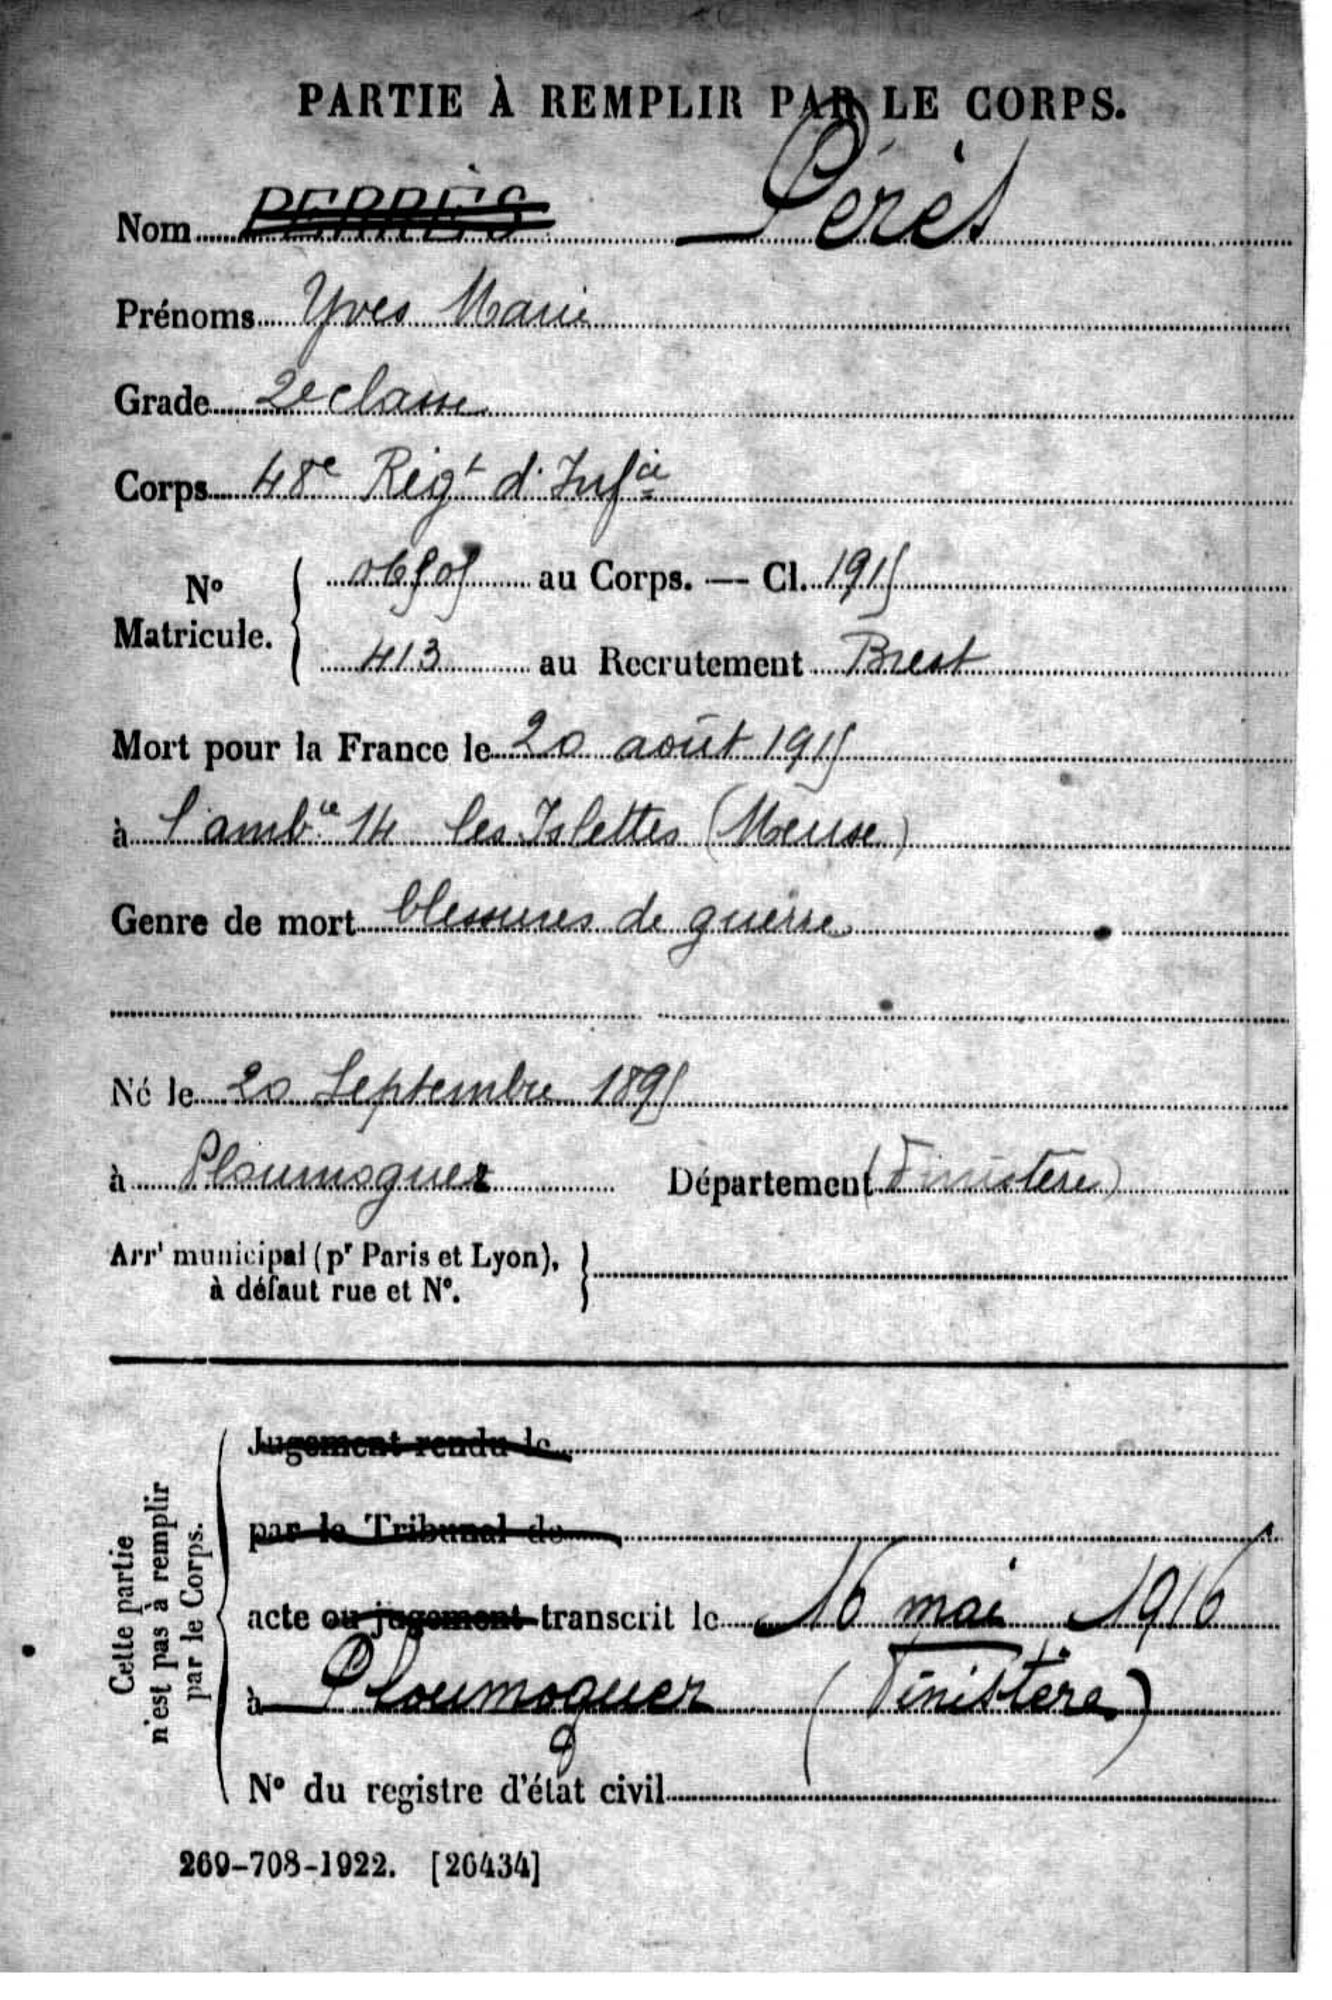 PARTIE À REMPLIR PAR LE CORPS.
Nom PERRÈS Pérès
Prénoms Yves Marie
Grade 2e classe
Corps 48e Régt d'Infie
No Matricule. au Corps. — Cl. 1915
413 au Recrutement Brest
Mort pour la France le 20 août 1915
à l'ambce 14 les Islettes (Meuse)
Genre de mort blessures de guerre
Né le 20 Septembre 1895
à Ploumoguer Département (Finistère)
Arrt municipal (pr Paris et Lyon),
à défaut rue et No.
Cette partie
n'est pas à remplir
par le Corps.
Jugement rendu le
par le Tribunal de
acte ou jugement transcrit le 16 mai 1916
à Ploumoguer (Finistère)
No du registre d'état civil
269-708-1922. [26434]